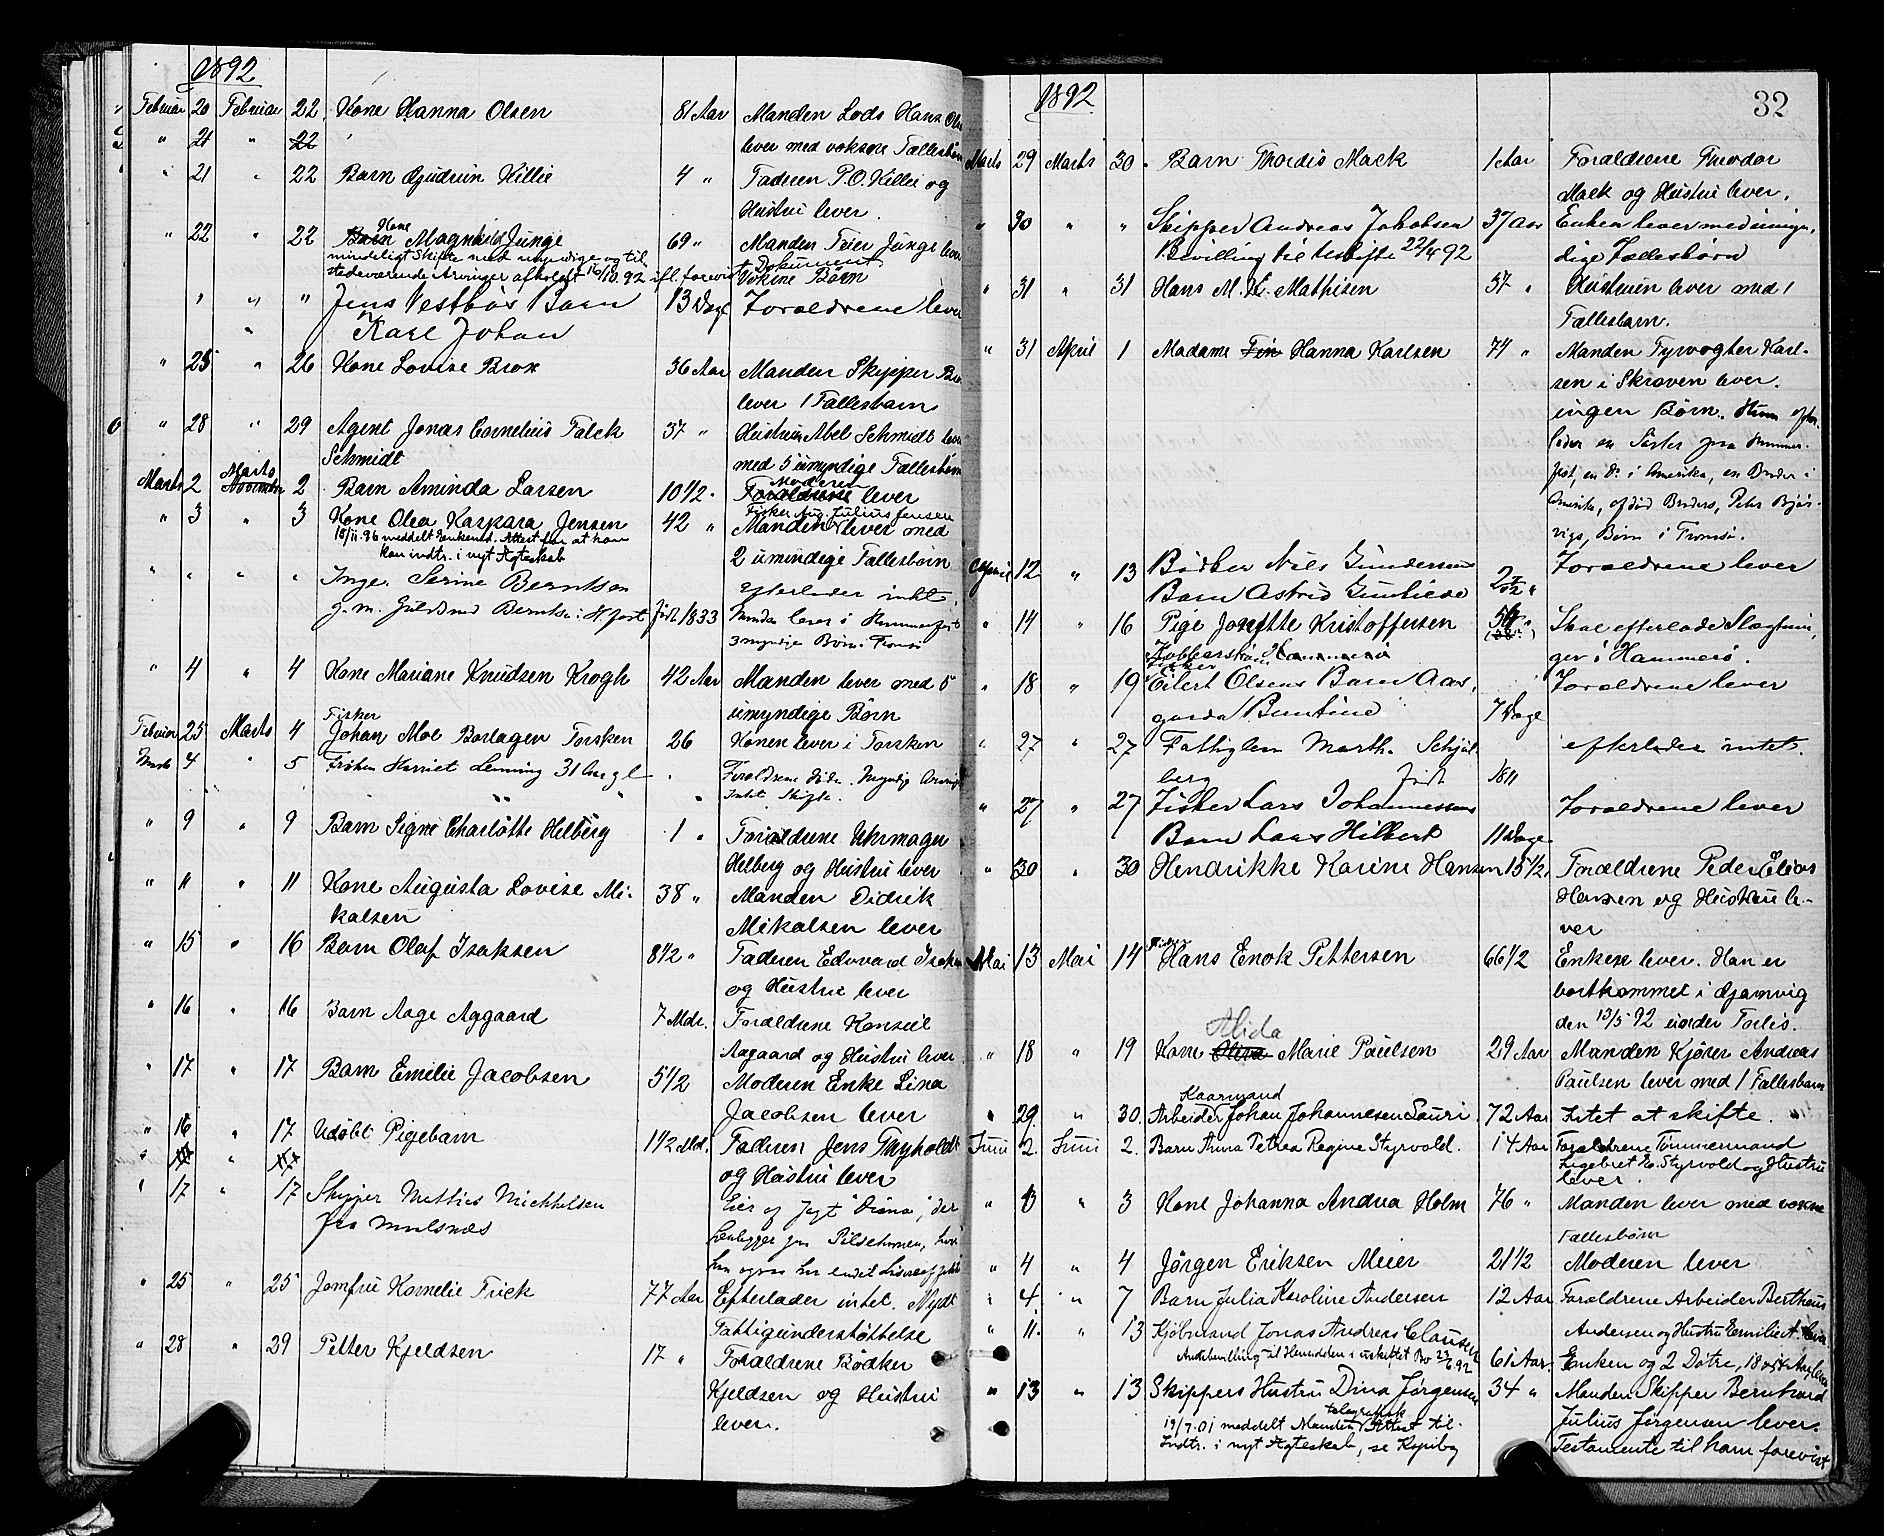 1892
Februar 20 Februar 22. Kone Hanna Olsen 81 Aar Manden Lods Hans
" 21 " 22 lever med voksne Fællesbørn
" 21 " 22 Barn Gudrun Killie 4 " Faderen P. O. Killie og
Hustru lever.
Kone
" 22 " 22 Barn Magnhild Junge 69 " Manden Peter Junge lever
mindeligt Skifte med umyndige og til-
stedeværende Arvinger afholdt 16/10. 92 ifl. forevist Dokument.
Voksne Børn
" " " " Jens Vestbøs Barn 13 Dage Forældrene lever
" Karl Johan
" 25 " 26 Kone Lovise Brox 36 Aar Manden Skipper
lever 1 Fællesbarn
" 28 " 29 Agent Jonas Cornelius Falck 37 " Hustrun Abel Schmidt lever
Schmidt med 5 umyndige Fællesbørn
Marts Moderen
Marts 2 November 2 Barn Aminda Larsen 10 1/2 " Forældrene lever
Fisker Aug. Julius Jensen
" 3 " 3 Kone Olea Kaspara Jensen 42 " Manden lever med
18/11. 96 meddelt Enkemd. Attest for at han
kan indtr. i nyt Ægteskab 2 umindige Fællesbørn
" " " " Inger Serine Berntsen Efterlader intet.
g. m. Guldsmd Berntsen i H.fest født 1833 Manden lever i Hammerfest
3 myndige Børn Tromsø
" 4 " 4 Kone Mariane Knudsen Krogh 42 Aar Manden lever med 5
umyndige Børn
Fisker
Februar 25 Marts 4 Johan Moe Borlagen Torsken 26 Konen lever i Torsken
Marts 4 " 5 Frøken Harriet Lenning 31 Aar gl " Forældrene døde. Myndig
Intet Skifte.
" 9 " 9 Barn Signe Charlotte Helberg 1 " Forældrene Uhrmager
Helberg og Hustru lever
" 11 " 11 Kone Augusta Lovise Mi- 38 " Manden Didrik
kalsen Mikalsen lever
" 15 " 16 Barn Olaf Isaksen 8 1/2 " Faderen Edvard Isaksen
og Hustru lever
" 16 " 16 Barn Aage Aagaard 7 Mdr. Forældrene Konsul
Aagaard og Hustru lever
" 17 " 17 Barn Emilie Jacobsen 5 1/2 Moderen Enke Lina
Jacobsen lever
" 16 " 17 Udøbt Pigebarn 1 1/2 Md. Faderen Jens Thyholdt
" 17 " 17 og Hustru lever
" 17 " 17 Skipper Mathias Mickkelsen Eier af Jagt "Diana", der
fra
" 25 " 25 Jomfru Kornelie Frick 77 Aar Efterlader intet. Nydt
Fattigunderstøttelse
" 28 " 29 Petter Kjeldsen 17 " Forældrene Bødker
Kjeldsen og Hustru
lever.
32
1892
Marts 29 Marts 30 Barn Thordis Mack 1 Aar Forældrene Theodor
Mack og Hustru lever.
" 30 " " Skipper Andreas Johansen 37 Aar Enken lever med umyn-
Bevilling til Uskifte 22/4 92 dige Fællesbørn
" 31 " 31 Hans M. Mathisen 37 " Hustruen lever med 1
Fællesbarn.
" 31 April 1 Madame Fin Hanna Karlsen 74 " Manden Fyrvogter Karl-
sen i Skroven lever.
ingen Børn. Hun efter-
lader en Søster fra Hammer-
fest, en do. i Amerika, en Broder i
Amerika, afdød Broders, Peter
Børn i Tromsø.
April 12 " 13 Bødker Nils Gundersens Forældrene lever
Barn Astrid 2 "
" 14 " 16 Pige Josefthe Kristoffersen 54 Skal efterlade Slægtnin-
ger i Hammerø.
Fisker
" 18 " 19 Eilert Olsens Barn Aas- Forældrene lever
garda Buntine 7 Dage
" 27 " 27 Fattiglem Marth. Schjøl- efterlader intet.
berg født 1811
" 27 " 27 Fisker Lars Johannessens Forældrene lever
Barn Lars Hilbert 11 Dage
" 30 " 30 Hendrikke Karine Hansen 15 1/2 Forældrene Peder Elias
Hansen og Hustrue le-
ver
Mai 13 Mai 14 Hans Enok Pettersen 66 1/2 Enken lever. Han er
bortkommet i Gjamvig
den 13/5 92 under
Alida
" 18 " 19 Kone Marie Paulsen 29 Aar Manden Kjører Andreas
Paulsen lever med 1 Fællesbarn
Kaarmand
" 29. " 30. Arbeider Johan Johannesen Lauri 72 Aar Intet at skifte. "
Juni 2. Juni 2. Barn Anna Petrea Regine Styrvold. 14 Aar Forældrene Tømmermand
Styrvold og Hustru
lever.
" 3 " 3 Kone Johanna Andrea Holm 76 " Manden lever med voxne
Fællesbørn
" 4 " 4 Jørgen Eriksen Meier 21 1/2 Moderen lever
" 4. " 7 Barn Julia Karoline Andersen 12 Aar Forældrene Arbeider Bertheus
Andersen og Hustru Emilie A. lever
" 11. " 13 Kjøbmand Jonas Andreas Clausen
til Henidden i uskiftet Bo 23/6 92 61 Aar Enken og 2 Døtre, 18 Aar, lever
" 13 " 13 Skippers Hustru Dina Jørgensen 34 " Manden Skipper Bernhard
telegrafisk
19/7. 01 meddelt Manden Attest til Julius Jørgensen lever.
Indtr. i nyt Ægteskab, se Kopibog Testamente til ham forevist